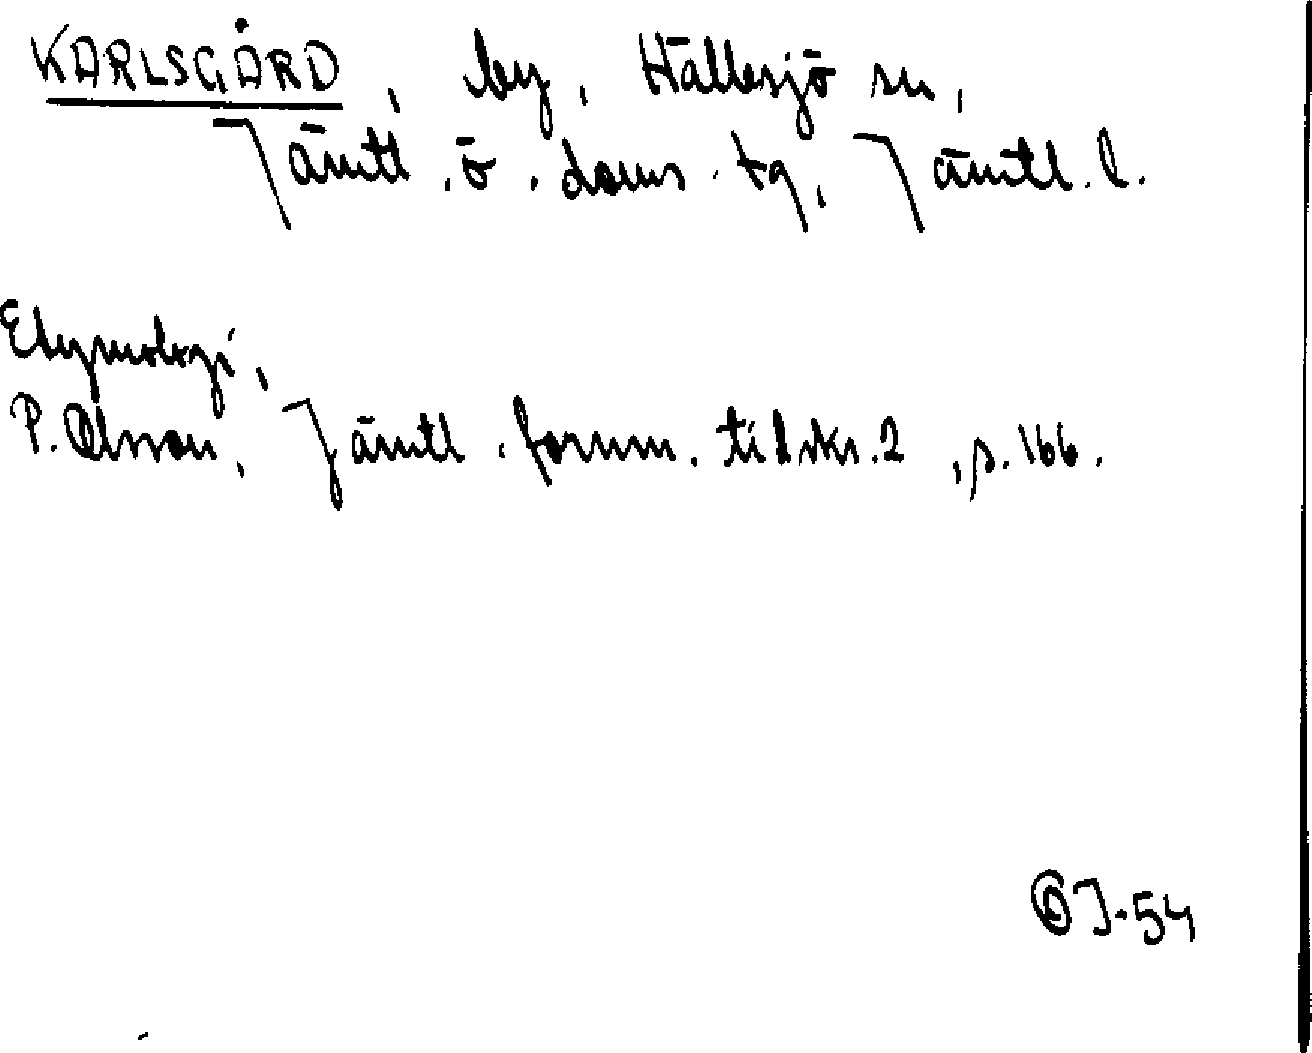 KARLSGÅRD, by, Hällesjö sn,
Jämtl. ö. doms. tg, Jämtl. l.
Etymologi,
P. Olsson, Jämtl. fornm. tidskr. 2, s. 166.
J-54